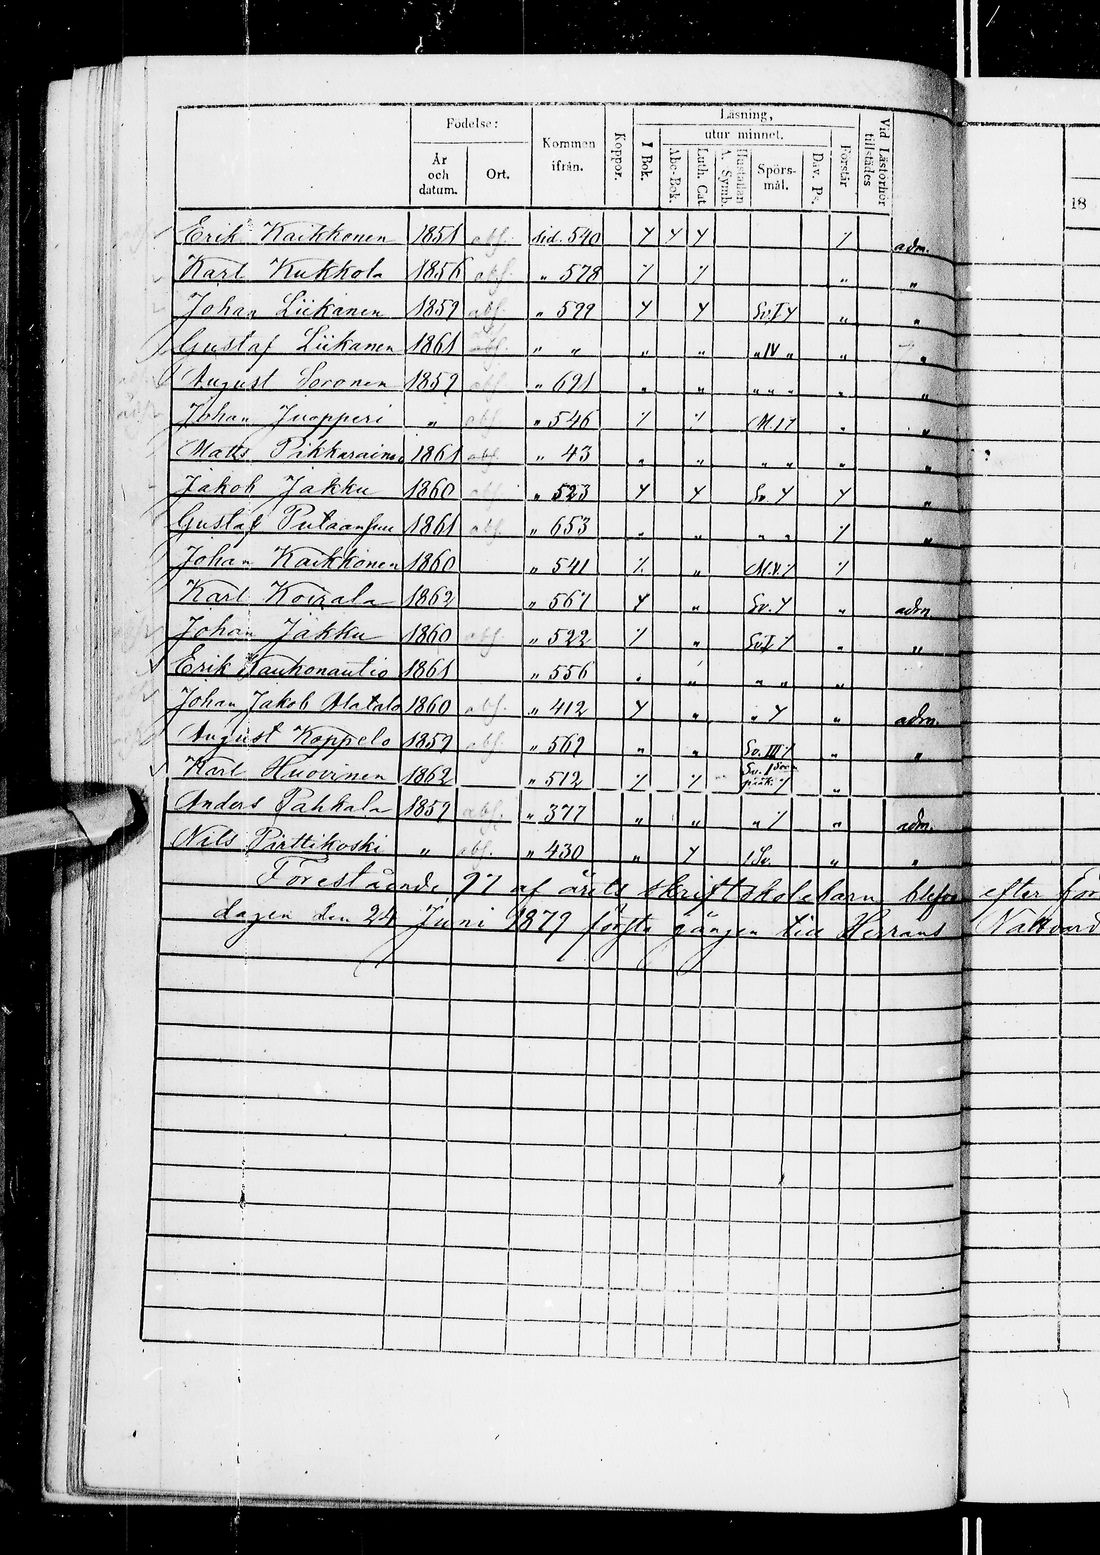 Födelse:
År och datum.
Ort.
Kommen ifrån.
Koppor.
Läsning,
utur minnet.
I Bok.
Abc-Bok.
Luth. Cat
Hustaflan A. Symb.
Spörsmål.
Dav. Ps.
Förstår
Vid Läsförhör tillstädes
18
Erik Kaikkonen 1851 abs. sid. 540 adm.
Karl Kukkola 1856 abs. „ 578 „ „
Johan Liikanen 1859 abs. „ 599 „ „
Gustaf Liikanen 1861 abs. „ „ „ „ „ IV „ „ „
August Soronen 1859 abs. „ 691 „ „ „ „ „ „ „
Johan Juopperi „ abs. „ 546 „ „
Matts Pikkarainen 1861 abs. „ 43 „ „ „ „ „ „
Jakob Jakku 1860 abs. „ 523 Sv. „
Gustaf 1861 abs. „ 653 „ „ „ „ „
Johan Kaikkonen 1860 „ 541 „
Karl Koirala 1862 „ 567 „ Sv. „ adm.
Johan Jakku 1860 abs. „ 522 „ „ „
Erik Kaukonautio 1861 „ 556 „ „ „ „ „
Johan Jakob Alatalo 1860 abs. „ 412 „ „ „ adm.
August Koppelo 1859 abs. „ 569 „ „ Sv. III „ „
Karl Huovinen 1862 „ 512 „
Anders Pahkala 1859 abs. „ 377 „ „ „ „ adm.
Nils Pirttikoski „ abs. „ 430 „ „ „
Förestående 91 af årets skriftskolebarn efter
dagen den 24 Juni 1879 första gången till Herrans Nattvard